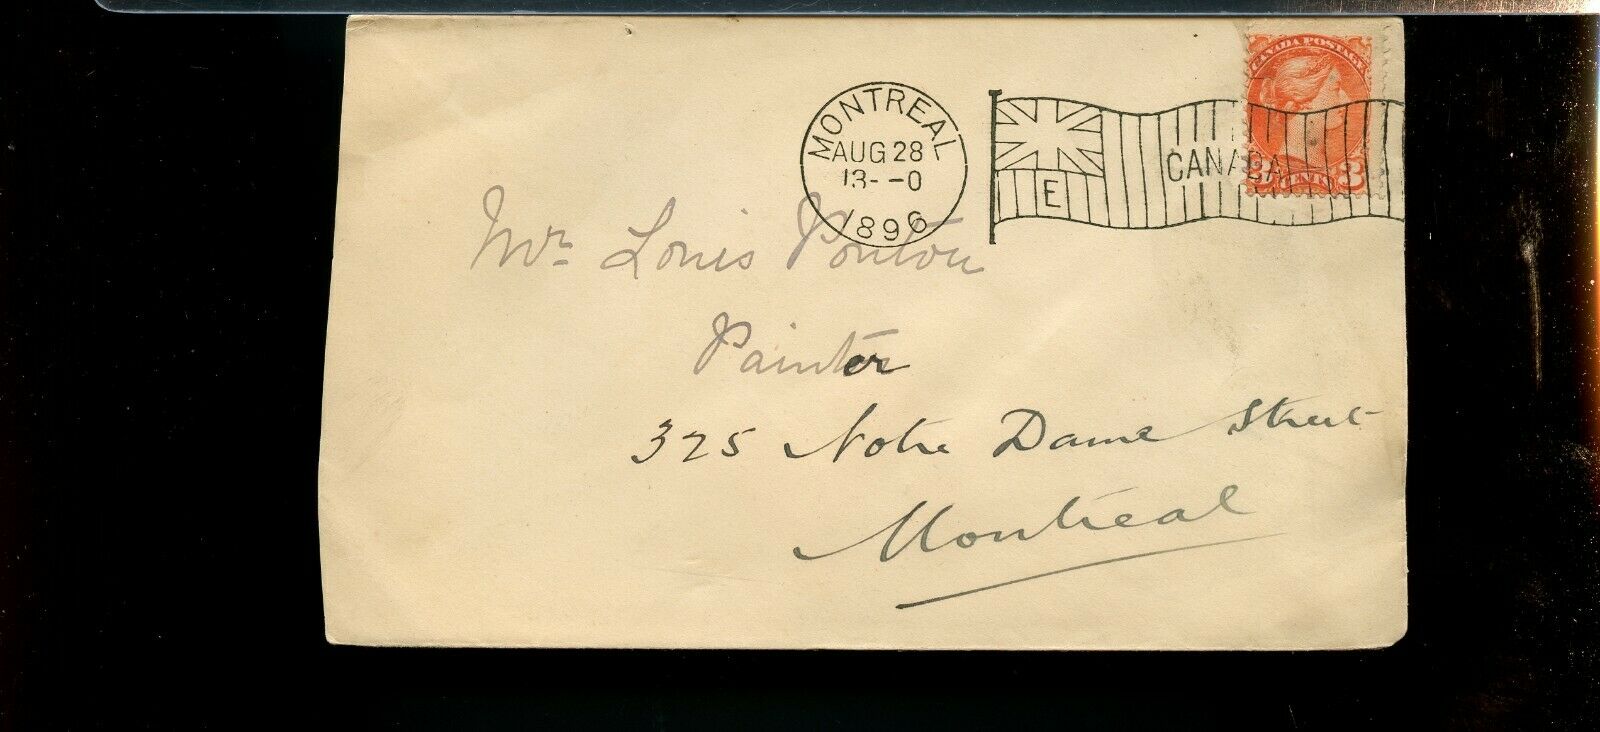 CANADA POSTAGE
3 CENTS 3
MONTREAL
AUG 28
13--0
1896
E
CANADA
Mr. Louis Ponton
Painter
325 Notre Dame Street
Montreal